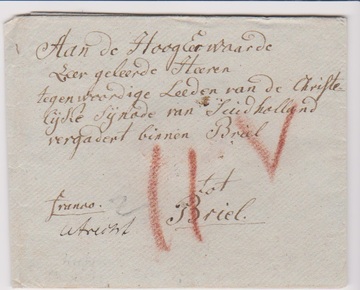 Aan de Hoog Eerwaarde
Zeer geleerde Heeren
tegenwoordige Leeden van de Christe
lijke Synode van Zuidholland
vergadert binnen Briel
tot
Franco.
Utrecht
Briel.